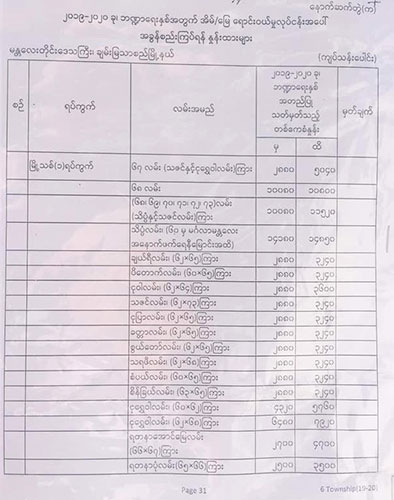 နောက်ဆက်တွဲ(က)
၂၀၁၉-၂၀၂၀ ခု၊ ဘဏ္ဍာရေးနှစ်အတွက် အိမ်/မြေ ရောင်းဝယ်မှုလုပ်ငန်းအပေါ်
အခွန်စည်းကြပ်ရန် နှုန်းထားများ
မန္တလေးတိုင်းဒေသကြီး၊ ချမ်းမြသာစည်မြို့နယ် (ကျပ်သန်းပေါင်း)
စဉ် ရပ်ကွက် လမ်းအမည် ၂၀၁၉-၂၀၂၀ ခု၊ ဘဏ္ဍာရေးနှစ် အတည်ပြု သတ်မှတ်သည့် တစ်ဧကစံနှုန်း မှတ်ချက်
မှ ထိ
မြို့သစ်(၁)ရပ်ကွက် ၆၇ လမ်း (သဇင်နှင့်ငွေဝါလမ်း)ကြား ၂၈၈၀ ၅၀၄၀
၆၈ လမ်း ၁၀၀၈၀ ၁၀၈၀၀
(၆၈၊ ၆၉၊ ၇၀၊ ၇၁၊ ၇၂၊ ၇၃)လမ်း (သိပ္ပံနှင့်သဇင်လမ်း)ကြား ၁၀၀၈၀ ၁၁၅၂၀
သိပ္ပံလမ်း၊ (၆၀ မှ မင်္ဂလာမန္တလေး အနောက်ဖက်ရေနီမြောင်းအထိ) ၁၄၁၈၀ ၁၄၈၅၀
ချယ်ရီလမ်း၊ (၆၂×၆၅)ကြား ၂၈၈၀ ၃၂၄၀
ပိတောက်လမ်း၊ (၆၀×၆၅)ကြား ၂၈၈၀ ၃၂၄၀
ငုဝါလမ်း၊ (၆၂×၆၄)ကြား ၂၈၈၀ ၃၆၀၀
သဇင်လမ်း၊ (၆၂×၇၃)ကြား ၂၈၈၀ ၃၂၄၀
ငုပြာလမ်း၊ (၆၂×၆၅)ကြား ၂၈၈၀ ၃၂၄၀
ခတ္တာလမ်း၊ (၆၂×၆၅)ကြား ၂၈၈၀ ၃၂၄၀
စွယ်တော်လမ်း၊ (၆၂×၆၅)ကြား ၂၈၈၀ ၃၂၄၀
သရဖီလမ်း၊ (၆၂×၆၈)ကြား ၂၈၈၀ ၃၂၄၀
စံပယ်လမ်း၊ (၆၀×၆၅)ကြား ၂၈၈၀ ၃၂၄၀
စိန်ခြယ်လမ်း၊ (၆၃×၆၅)ကြား ၂၈၈၀ ၃၂၄၀
ငွေဝါလမ်း၊ (၆၀×၆၂)ကြား ၄၃၂၀ ၅၇၆၀
ငွေဝါလမ်း၊ (၆၂×၆၈)ကြား ၆၄၈၀ ၇၉၂၀
ရတနာအောင်မြေလမ်း (၆၆×၆၇)ကြား ၂၇၀၀ ၄၇၀၀
ရတနာပုံလမ်း(၆၅×၆၆)ကြား ၂၅၀၀ ၃၅၀၀
Page 31 6 Township(19-20)